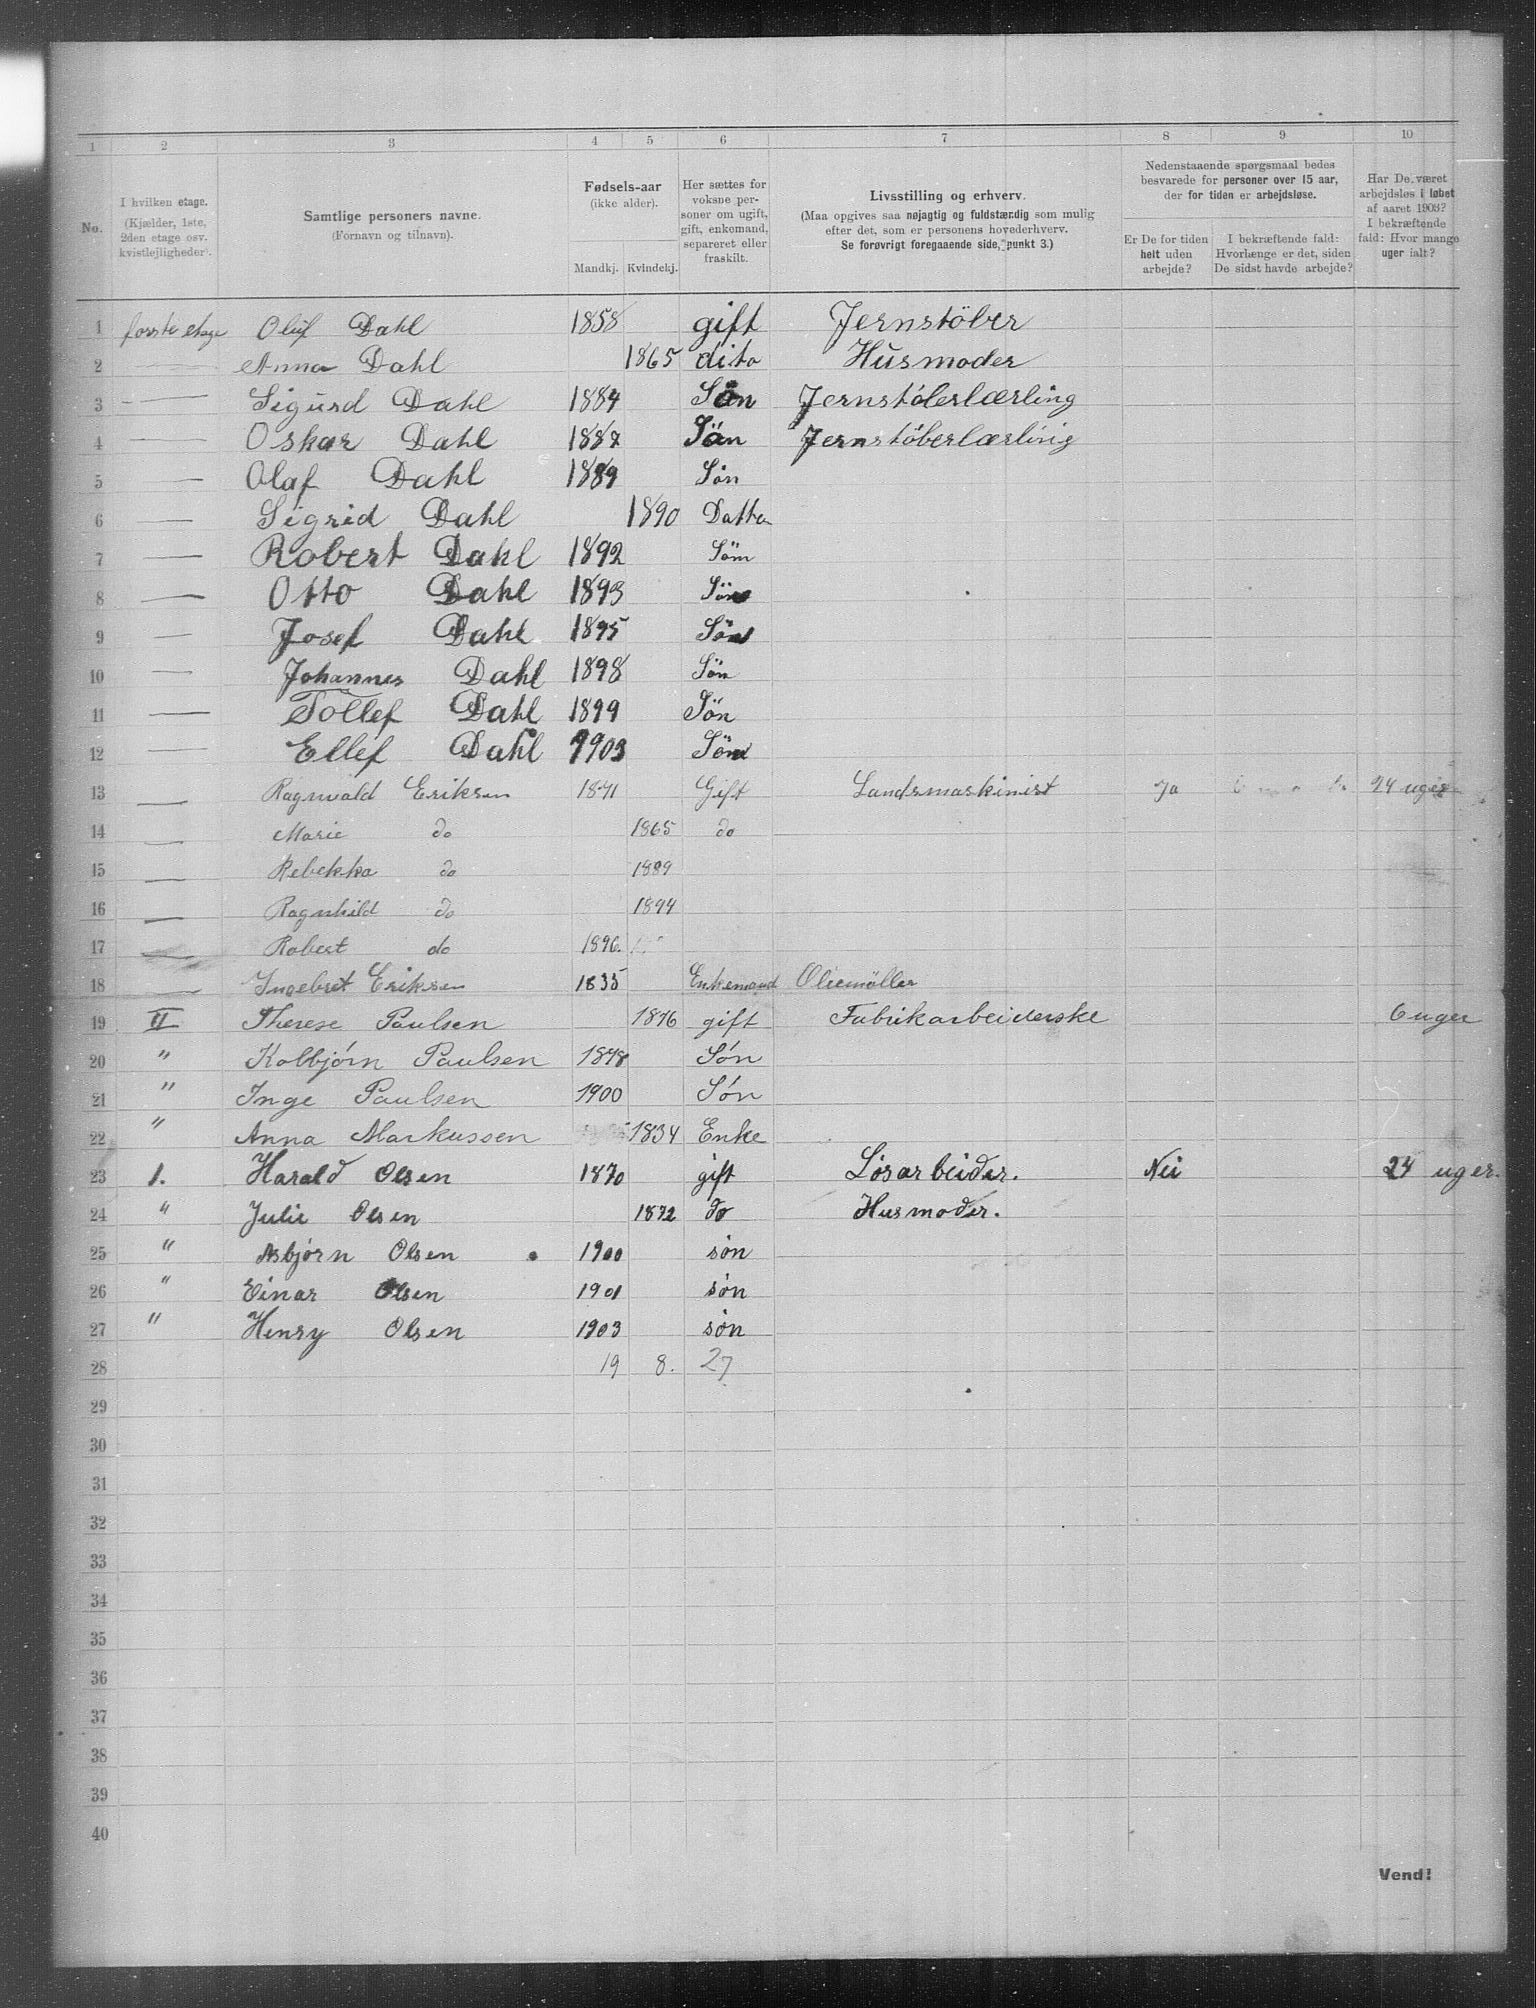 1 2 3 4 5 6 7 8 9 10
No.
I hvilken etage.
(Kjælder, 1ste,
2den etage osv.
kvistlejligheder).
Samtlige personers navne.
(Fornavn og tilnavn).
Fødsels-aar
(ikke alder).
Mandkj. Kvindekj.
Her sættes for
voksne per-
soner om ugift,
gift, enkemand,
separeret eller
fraskilt.
Livsstilling og erhverv.
(Maa opgives saa nøjagtig og fuldstændig som mulig
efter det, som er personens hovederhverv.
Se forøvrigt foregaaende side, punkt 3.)
Nedenstaaende spørgsmaal bedes
besvarede for personer over 15 aar,
der for tiden er arbejdsløse.
Er De for tiden
helt uden
arbejde?
I bekræftende fald:
Hvorlænge er det, siden
De sidst havde arbejde?
Har De været
arbejdsløs i løbet
af aaret 1903?
I bekræftende
fald: Hvor mange
uger ialt?
1 første etage Oluf Dahl 1858 gift Jernstöber
2 — Anna Dahl 1865 dito Husmoder
3 — Sigurd Dahl 1884 Sön Jernstöberlærling
4 — Oskar Dahl 1887 Sön Jernstöberlærling
5 — Olaf Dahl 1889 Sön
6 — Sigrid Dahl 1890 Datter
7 — Robert Dahl 1892 Sön
8 — Otto Dahl 1893 Sön
9 — Josef Dahl 1895 Sön
10 — Johannes Dahl 1898 Sön
11 — Tollef Dahl 1899 Sön
12 — Ellef Dahl 1903 Sön
13 — Ragnvald Eriksen 1871 Gift Landsmaskinist Ja 24 uger
14 — Marie do 1865 do
15 — Rebekka do 1889
16 — Ragnhild do 1894
17 — Robert do 1896.
18 — Ingebret Eriksen 1835 Enkemand Oliemöller
19 II Therese Paulsen 1876 gift Fabrikarbeiderske 6 uger
20 " Kolbjørn Paulsen 1898 Søn
21 " Inge Paulsen 1900 Søn
22 " Anna Markussen 1834 Enke
23 1. Harald Olsen 1870 gift Løsarbeider. Nei 24 uger.
24 " Julie Olsen 1872 do Husmoder.
25 " Asbjørn Olsen 1900 søn
26 " Einar Olsen 1901 søn
27 " Henry Olsen 1903 søn
28 19 8. 27
29
30
31
32
33
34
35
36
37
38
39
40
Vend!